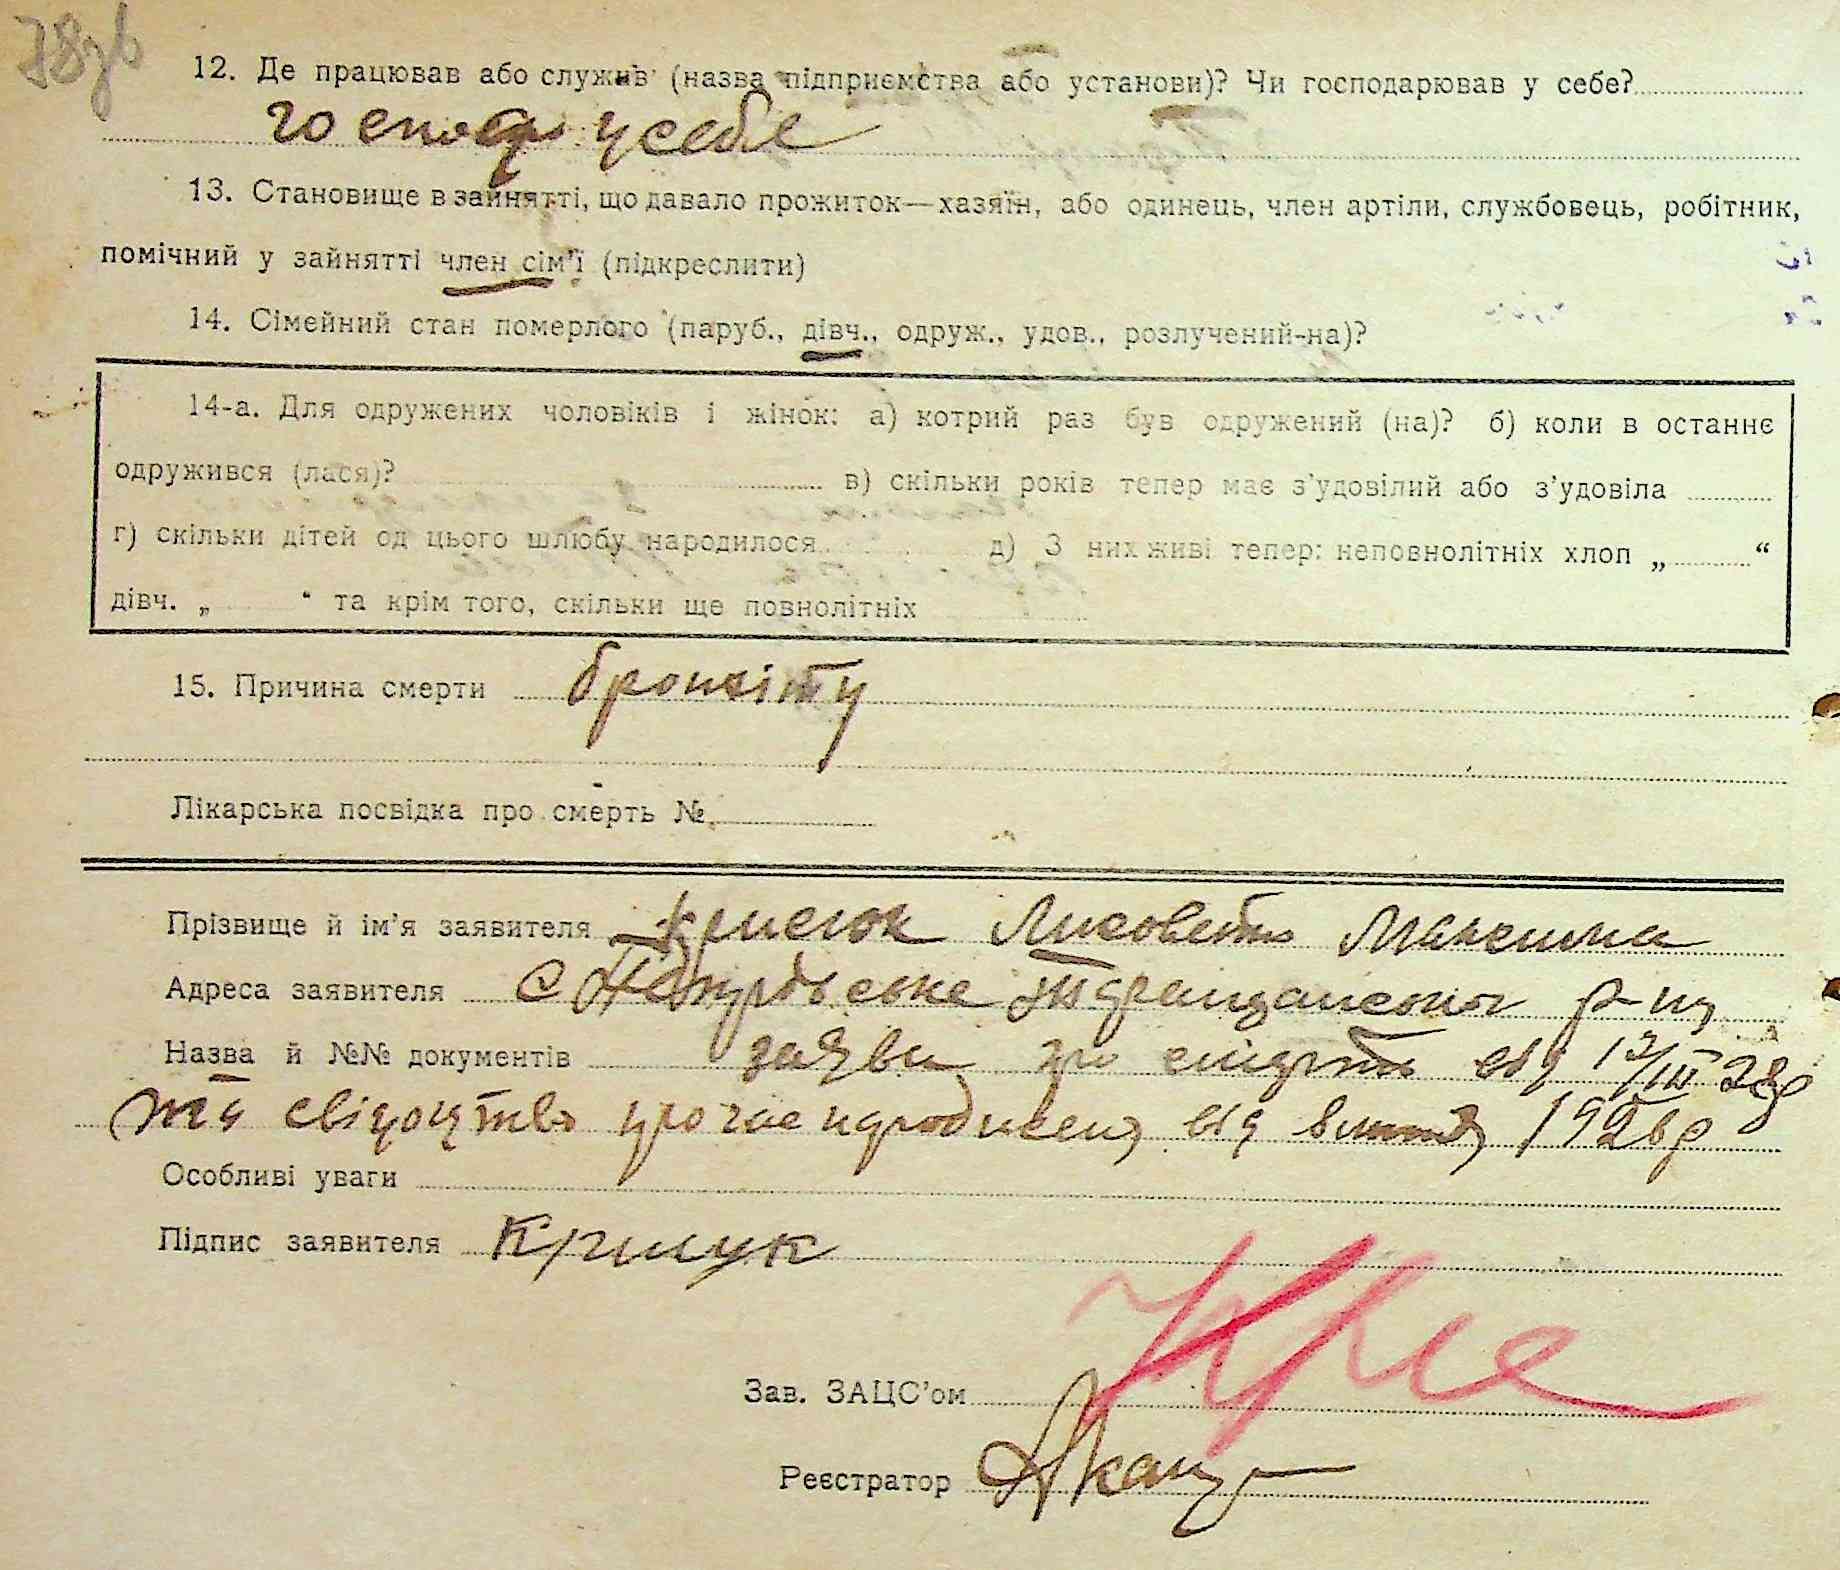 78зв
12. Де працював або служив (назва підприємства або установи)? Чи господарював у себе?
господ у себе
13. Становище в зайнятті, що давало прожиток—хазяїн, або одинець, член артіли, службовець, робітник,
помічний у зайнятті член сім'ї (підкреслити)
14. Сімейний стан померлого (паруб., дівч., одруж., удов., розлучений-на)?
14-а. Для одружених чоловіків і жінок: а) котрий раз був одружений (на)? б) коли в останнє
одружився (лася)? в) скільки років тепер має з'удовілий або з'удовіла
г) скільки дітей од цього шлюбу народилося д) З них живі тепер: неповнолітніх хлоп „ “
дівч. „ “ та крім того, скільки ще повнолітніх
15. Причина смерти бронхіту
Лікарська посвідка про смерть №
Прізвище й ім'я заявителя Лисовета Максима
Адреса заявителя с р-ну
Назва й №№ документів заява про смерть від 12/III 28р
та свідоцтво про від 1926р
Особливі уваги
Підпис заявителя
Зав. ЗАЦС'ом
Реєстратор